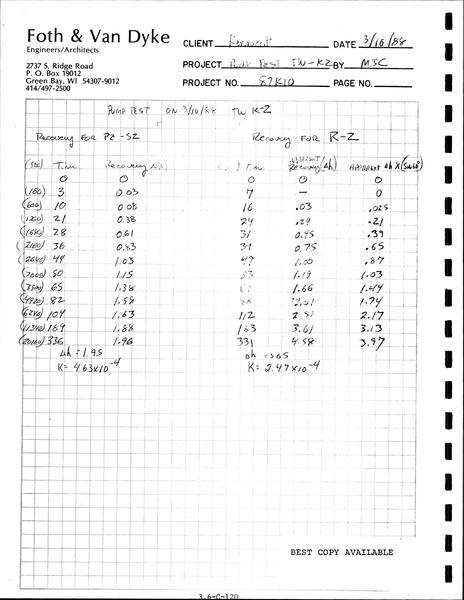 Foth & Van Dyke
Engineers/Architects
2737 S. Ridge Road
P. O. Box 19012
Green Bay, WI 54307-9012
414/497-2500
CLIENT Kennecott DATE 3/16/88
PROJECT Pump Test TW-K2 BY MJC
PROJECT NO. 87K10 PAGE NO.
PUMP TEST ON 3/10/88 TW K-2
Recovery FOR PZ-S2 Recovery FOR R-2
(sec) Time Recovery (Δh) Time Apparent Recovery (Δh) Apparent Δh X
0 0 0 0 0
(180) 3 0.03 7 — 0
(600) 10 0.08 16 .03 .025
21 0.38 24 .29 .21
28 0.61 31 0.45 .39
(2160) 36 0.83 0.75 .65
(2640) 44 1.03 47 1.00 .87
50 1.15 53 1.19 1.03
65 1.38 1.66 1.44
82 1.58 1.74
(6240) 104 1.63 112 2.51 2.17
(11340) 189 1.88 183 3.61 3.13
(20160) 336 1.96 331 4.58 3.97
Δh = 1.95 Δh = 3.65
K = 4.63x10⁻⁴ K = 2.47x10⁻⁴
BEST COPY AVAILABLE
3.6-C-120